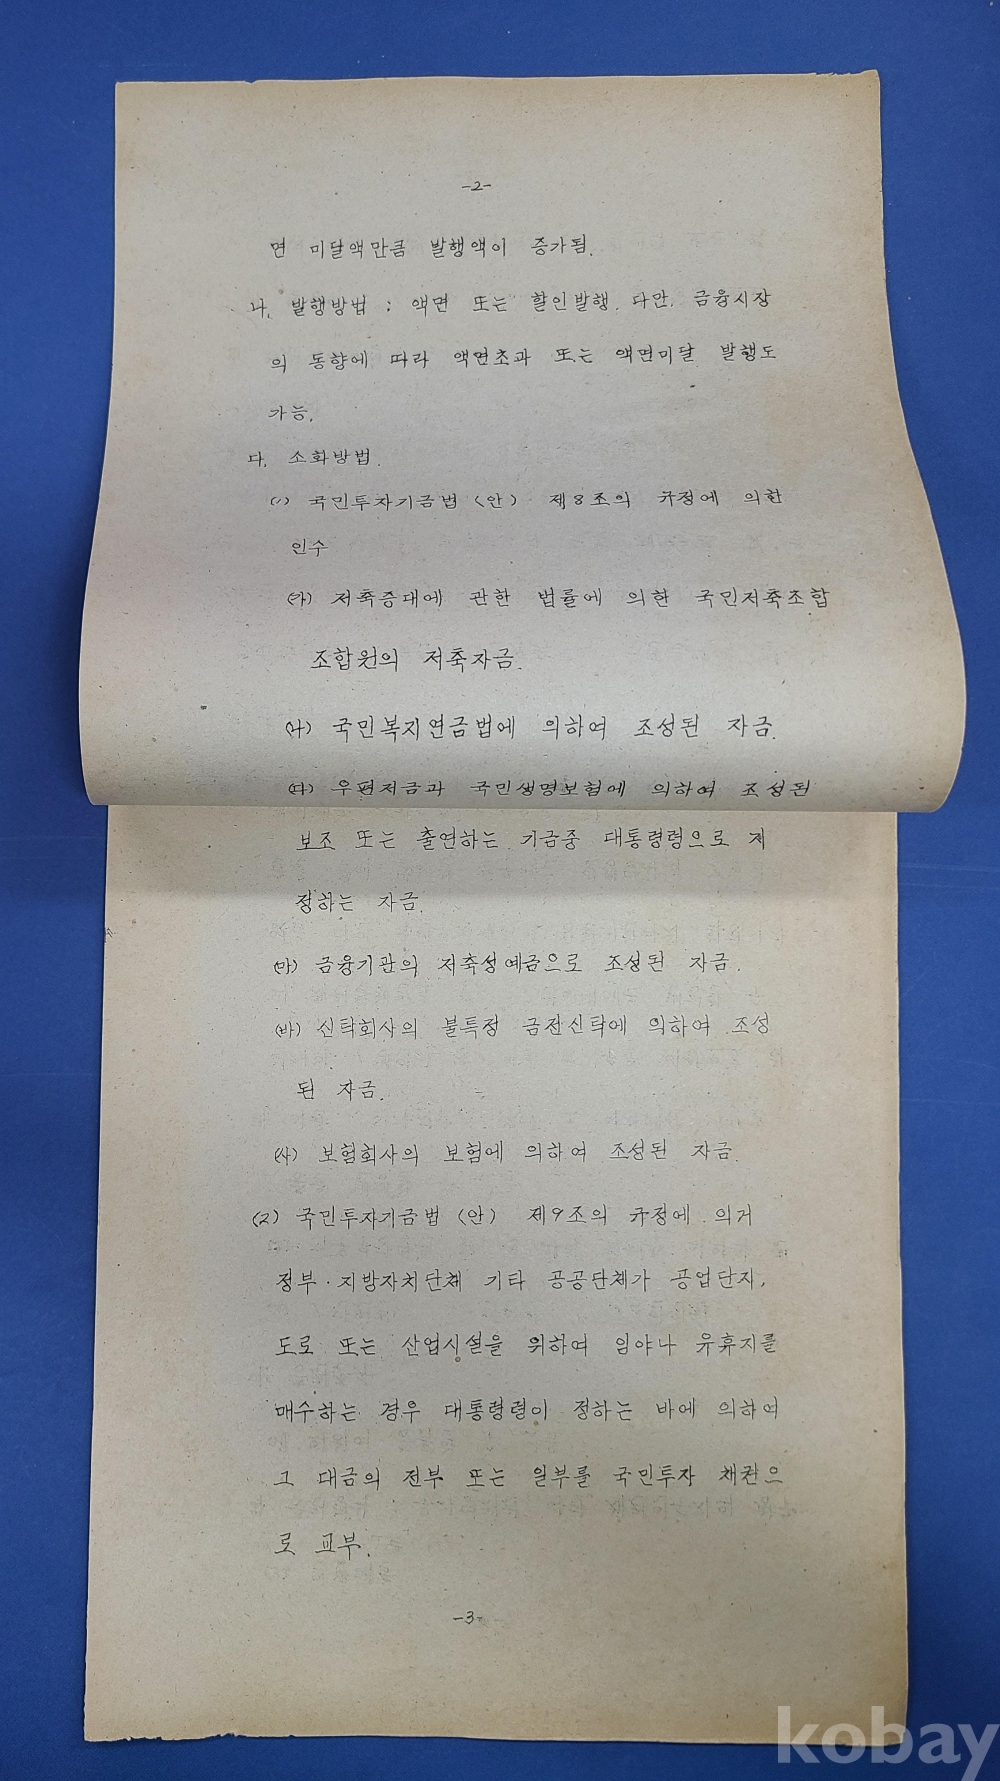 -2-
면 미달액만큼 발행액이 증가됨.
나. 발행방법 : 액면 또는 할인발행. 다만, 금융시장
의 동향에 따라 액면초과 또는 액면미달 발행도
가능.
다. 소화방법.
(1) 국민투자기금법 (안) 제8조의 규정에 의한
인수
(가) 저축증대에 관한 법률에 의한 국민저축조합
조합원의 저축자금.
(나) 국민복지연금법에 의하여 조성된 자금.
(다) 우편저금과 국민생명보험에 의하여 조성된
보조 또는 출연하는 기금중 대통령령으로 지
정하는 자금.
(마) 금융기관의 저축성예금으로 조성된 자금.
(바) 신탁회사의 불특정 금전신탁에 의하여 조성
된 자금.
(사) 보험회사의 보험에 의하여 조성된 자금.
(2) 국민투자기금법 (안) 제9조의 규정에 의거
정부·지방자치단체 기타 공공단체가 공업단지,
도로 또는 산업시설을 위하여 임야나 유휴지를
매수하는 경우 대통령령이 정하는 바에 의하여
그 대금의 전부 또는 일부를 국민투자 채권으
로 교부.
-3-
kobay